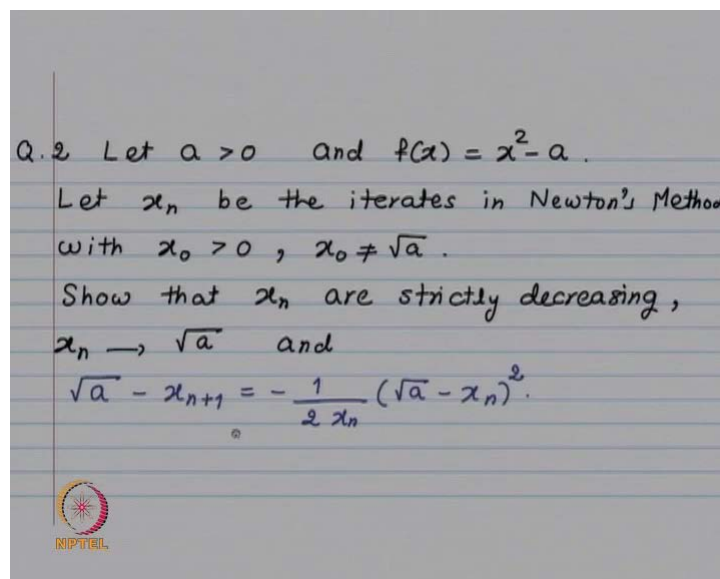 Q.2 Let a > 0 and f(x) = x² - a.
Let xₙ be the iterates in Newton's Method
with x₀ > 0, x₀ ≠ √a.
Show that xₙ are strictly decreasing,
xₙ → √a and
√a - xₙ₊₁ = - 1/(2 xₙ) (√a - xₙ)².
NPTEL